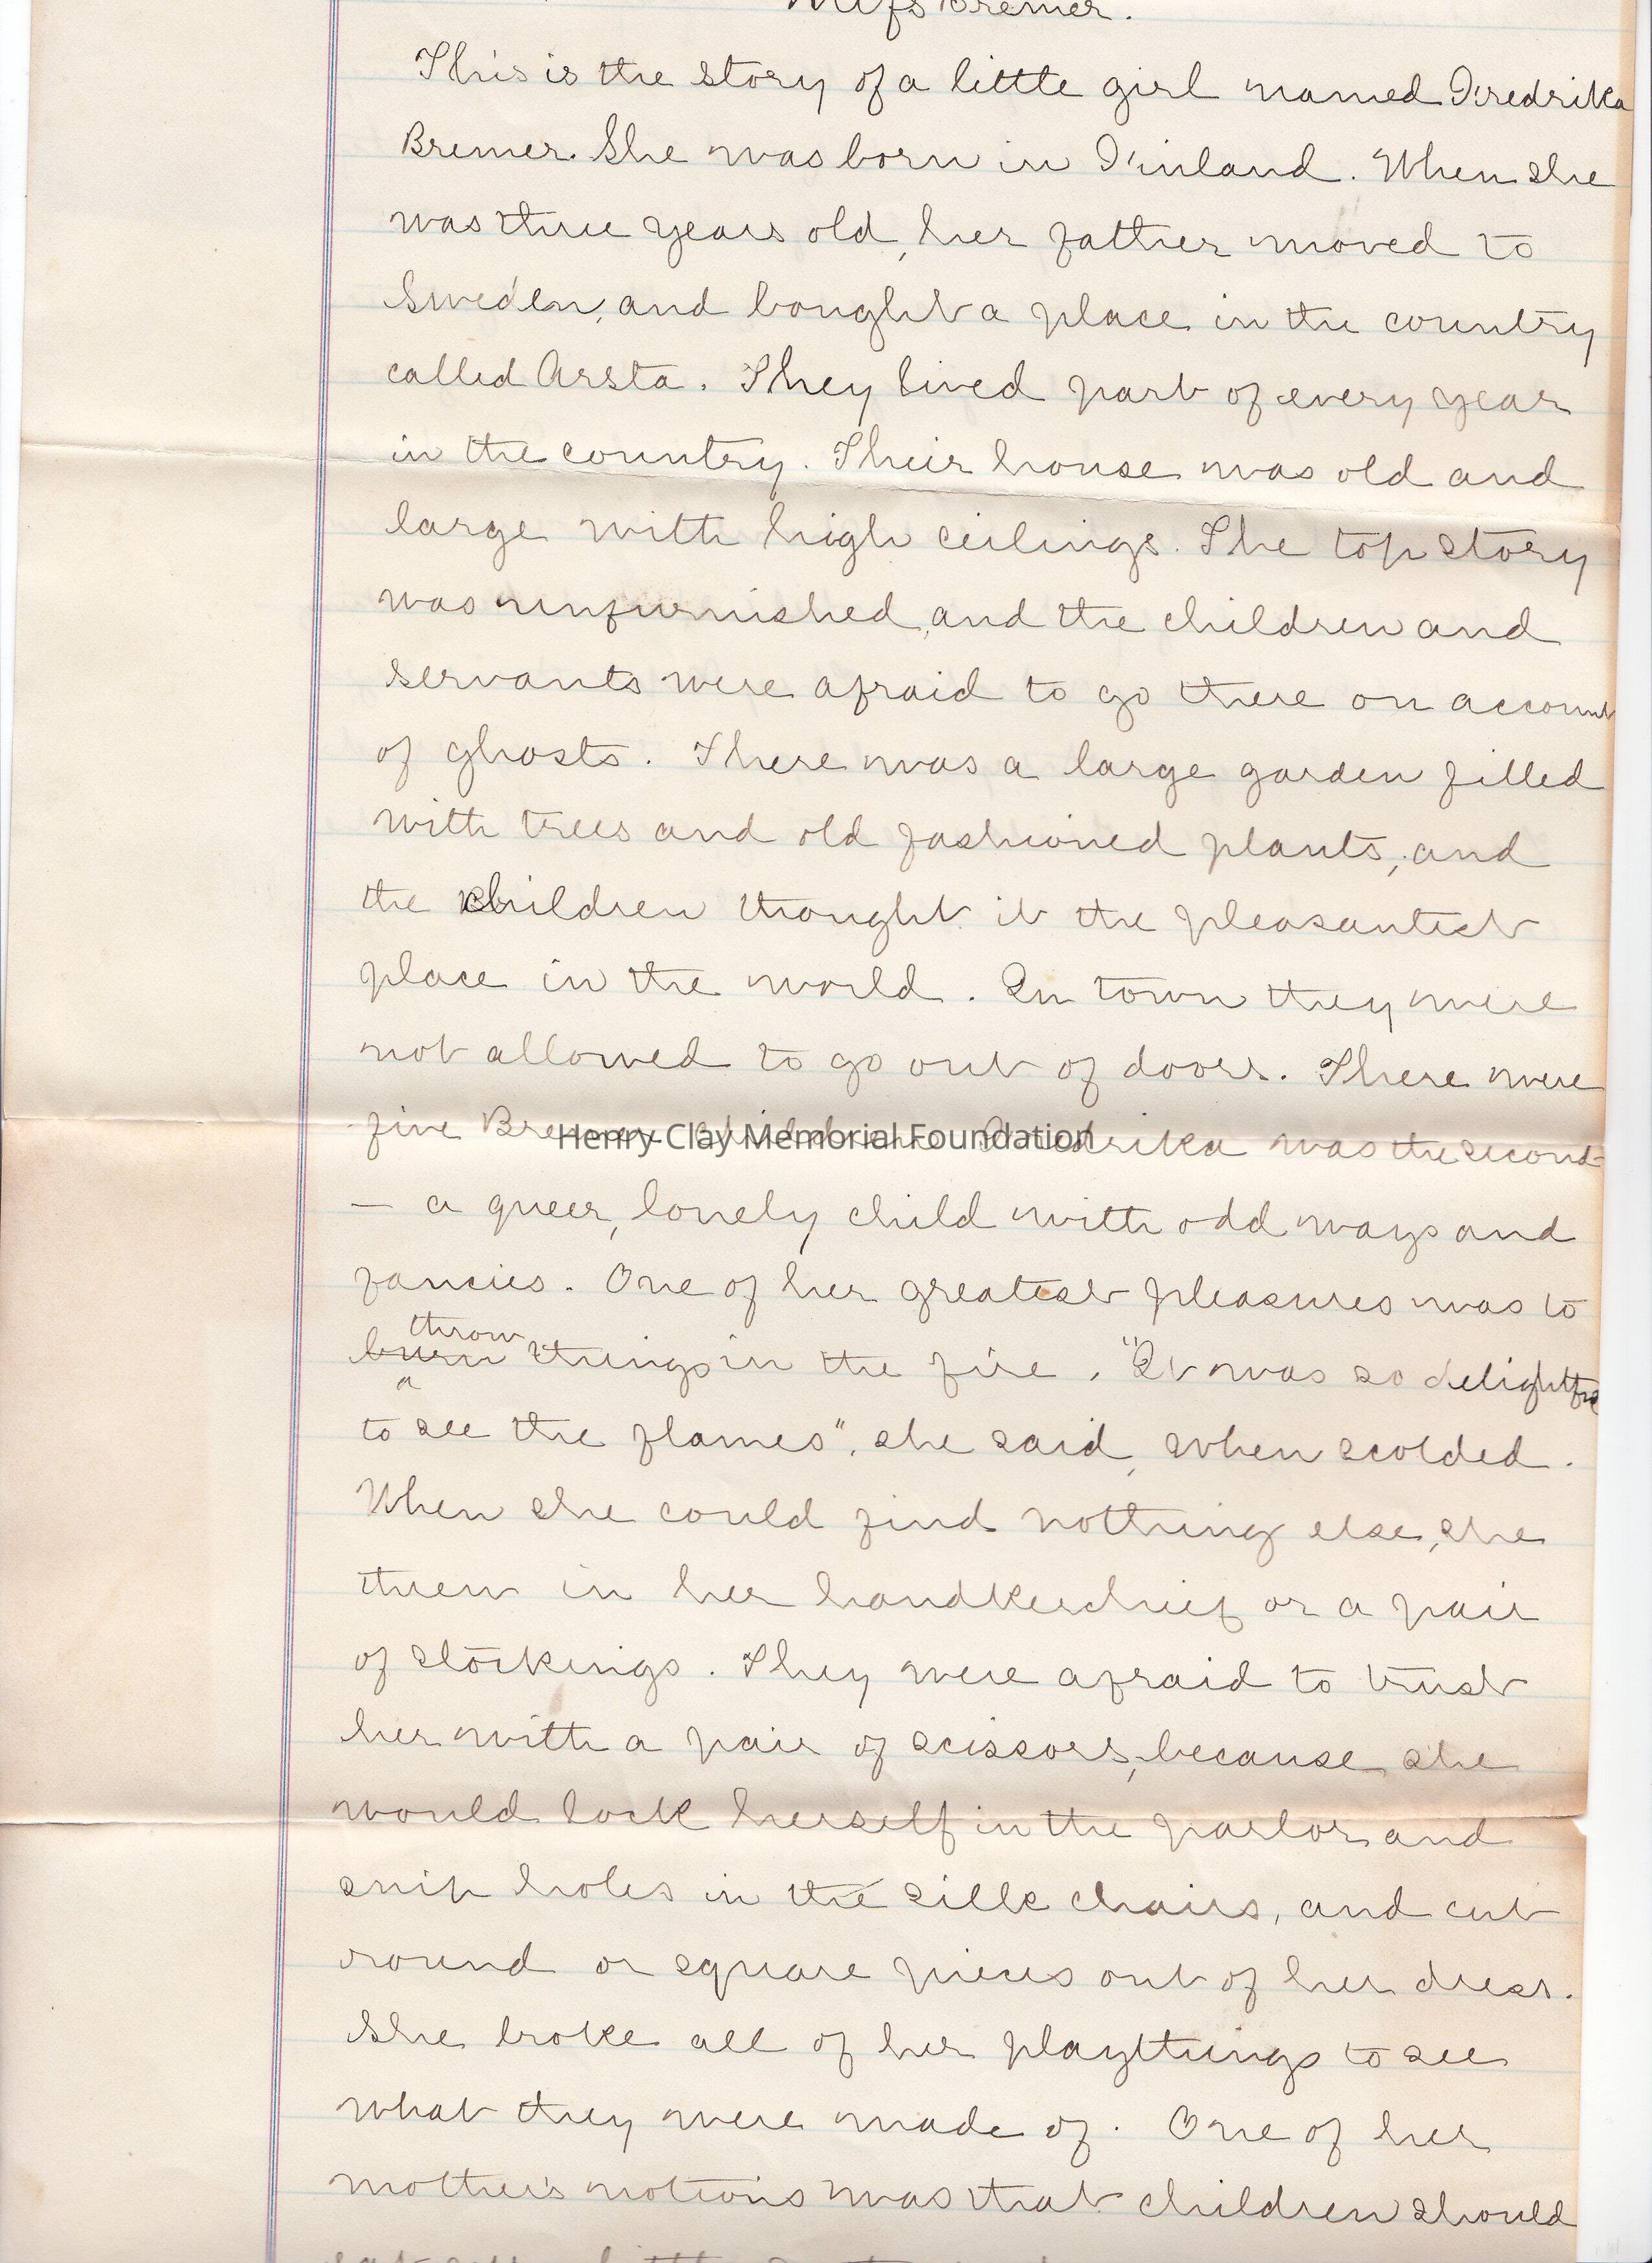 Miss Bremer.
This is the story of a little girl named Fredrika
Bremer. She was born in Finland. When she
was three years old, her father moved to
Sweden, and bought a place in the country
called Arsta. They lived part of every year
in the country. Their house was old and
large with high ceilings. The top story
was unfurnished, and the children and
servants were afraid to go there on account
of ghosts. There was a large garden filled
with trees and old fashioned plants, and
the children thought it the pleasantest
place in the world. In town they were
not allowed to go out of doors. There were
five Bremer children. Fredrika was the second
Henry Clay Memorial Foundation
— a queer, lonely child with odd ways and
fancies. One of her greatest pleasures was to
throw
burn things in the fire. "It was so delightful
to see the flames", she said, when scolded.
When she could find nothing else, she
threw in her handkerchief or a pair
of stockings. They were afraid to trust
her with a pair of scissors, because she
would lock herself in the parlor and
snip holes in the silk chairs, and cut
round or square pieces out of her dress.
She broke all of her playthings to see
what they were made of. One of her
mother's notions was that children should